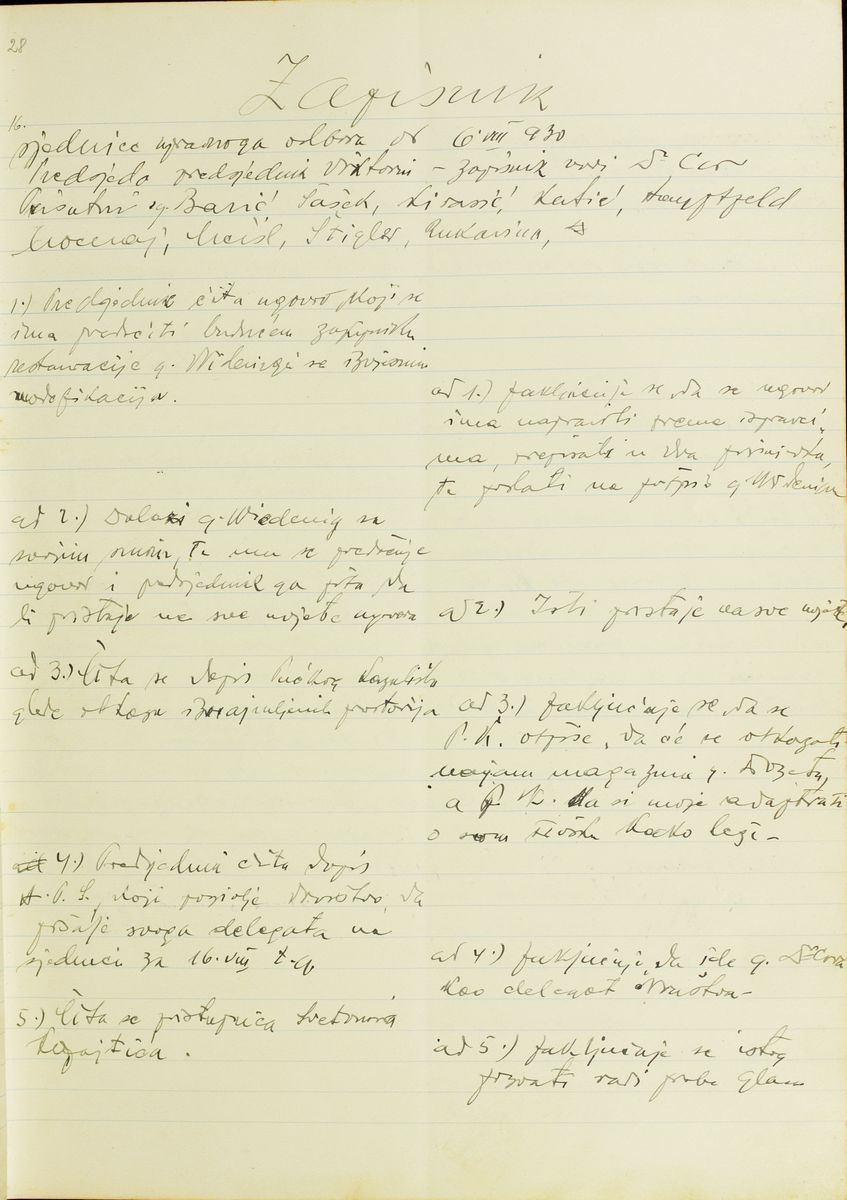 28
Zapisnik
16.
sjednice upravnoga odbora od 6 VIII 930
Predsjeda predsjednik Viktorin – zapisnik vodi Dr Car
Prisutni g. Banić Sašek, Kirasić, Katić,
Stigler, Rukavina,
1.) Predsjednik čita ugovor koji se
ima predočiti budućem zakupniku
restauracije g. Widenigu sa izvjesnim
modifikacijam.
ad 1.) Zaključuje se, da se ugovor
ima napraviti prema ispravci-
ma, prepisati u dva primjerka,
te poslati na potpis g. Widenigu
ad 2.) Dolazi g. Wiedenig sa
svojim sinom, te mu se predočuje
ugovor i predsjednik ga pita da
li pristaje na sve uvjete ugovora
ad 2.) Isti pristaje na sve uvjete,
ad 3.) Čita se dopis Pučkog Kazališta
glede otkaza iznajmljenih prostorija
ad 3.) Zaključuje se, da se
P. K. otpiše, da će se otkazati
najam magazina g.
a P. K. da si može adaptirati
o svom trošku kako leži –
4.) Predsjednik čita dopis
H. P. S., koji poziva društvo, da
pošalje svoga delegata na
sjednicu za 16. VIII t. g.
ad 4.) Zaključuje, da ide g. Dr Cora
kao delegat društva –
5.) Čita se pristupnica Svetozara
ad 5.) Zaključuje se istog
pozvati radi probe glasa